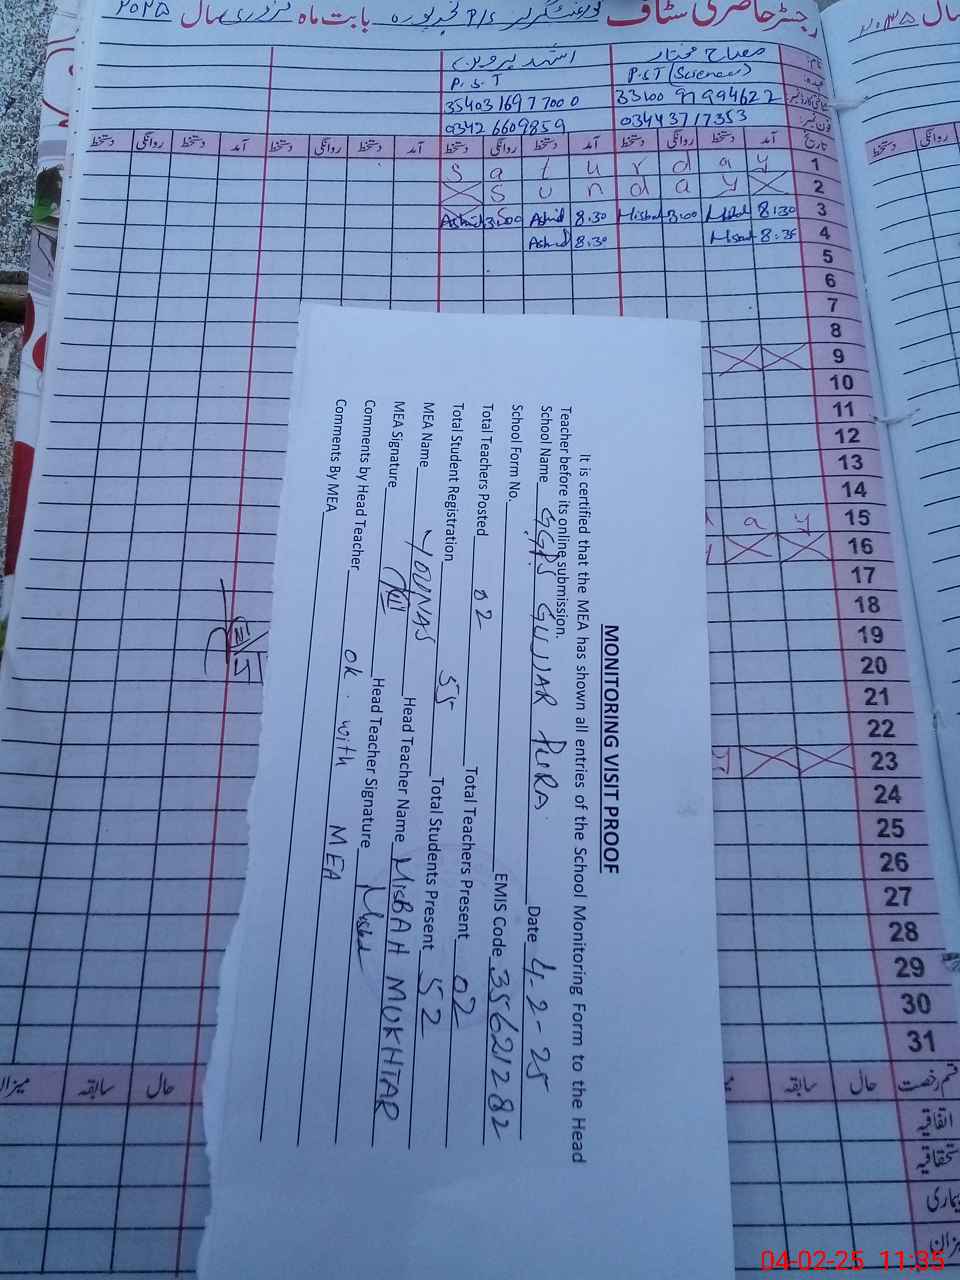 رجسٹر حاضری سٹاف گورنمنٹ گرلز P/S گجر پورہ بابت ماہ فروری سال ۲۰۲۵
نام: مصباح مختار
عہدہ: P.S.T (Science) P.S.T
33100 91994622 3540316977000
فون نمبر: 03443717353 03426609859
تاریخ آمد دستخط روانگی دستخط آمد دستخط روانگی دستخط آمد دستخط روانگی دستخط آمد دستخط روانگی دستخط
1 S a t u r d a y
2 S u n d a y
3 8:30 Misbah 3:00 Misbah 8:30 3:00
4 8:30
5
6
7
8
9
10
11
12
13
14
15 a y
16
17
18
19
20
21
22
23
24
25
26
27
28
29
30
31
قسم رخصت حال سابقہ حال سابقہ میزان
اتفاقیہ
استحقاقیہ
بیماری
میزان
MONITORING VISIT PROOF
It is certified that the MEA has shown all entries of the School Monitoring Form to the Head
Teacher before its online submission.
School Name GGPS GUJJAR PURA. Date 4-2-25
School Form No. EMIS Code 35621282
Total Teachers Posted 02 Total Teachers Present 02
Total Student Registration 55 Total Students Present 52
MEA Name YOUNAS Head Teacher Name MISBAH MUKHTAR
MEA Signature Head Teacher Signature Misbah
Comments by Head Teacher ok. with MEA
Comments By MEA
04-02-25 11:35